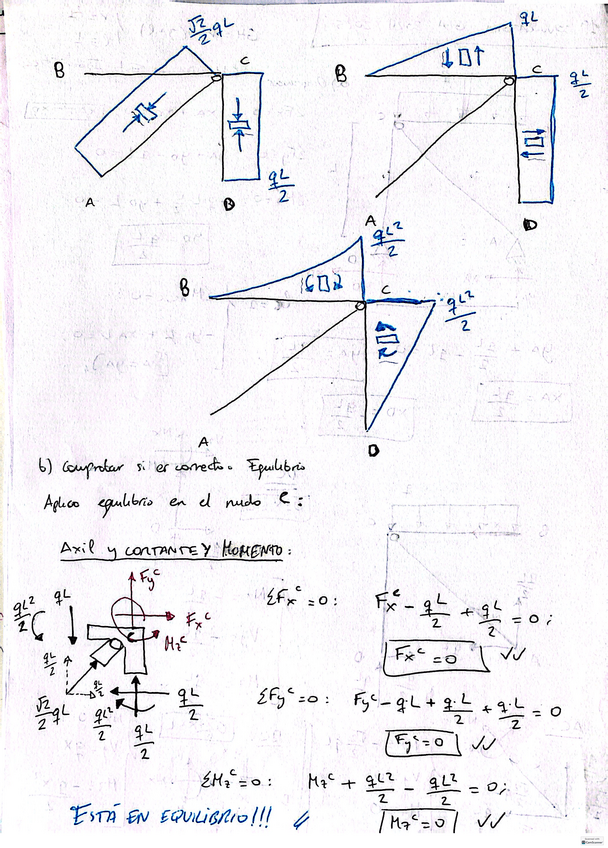 √2/2 qL
B
C
A
D
qL/2
qL
B
C
qL/2
A
D
qL²/2
B
C
qL²/2
A
D
b) Comprobar si es correcto. Equilibrio
Aplico equilibrio en el nudo C:
Axil y CORTANTE Y MOMENTO:
Fy^C
qL²/2
qL
Fx^C
C
Mz^C
qL/2
qL/2
√2/2 qL
qL²/2
qL/2
qL/2
ΣFx^C = 0: Fx^C - qL/2 + qL/2 = 0;
Fx^C = 0 ✓✓
ΣFy^C = 0: Fy^C - q·L + q·L/2 + q·L/2 = 0
Fy^C = 0 ✓✓
ΣMz^C = 0: Mz^C + qL²/2 - qL²/2 = 0;
Mz^C = 0 ✓✓
ESTÁ EN EQUILIBRIO!!!
CamScanner